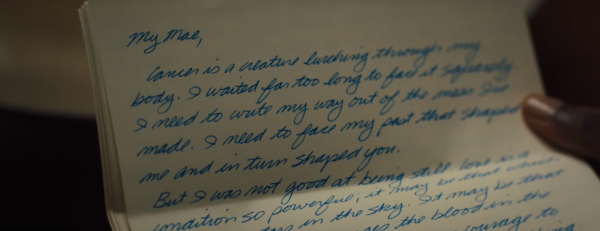 My Mae,
Cancer is a creature lurching through my
body. I waited far too long to face it squarely
I need to write my way out of the mess I've
made. I need to face my past that shaped
me and in turn shaped you.
But I was not good at being still. Love is a
condition so powerful, it may be that which
in the sky. It may be that
the blood in the
courage to